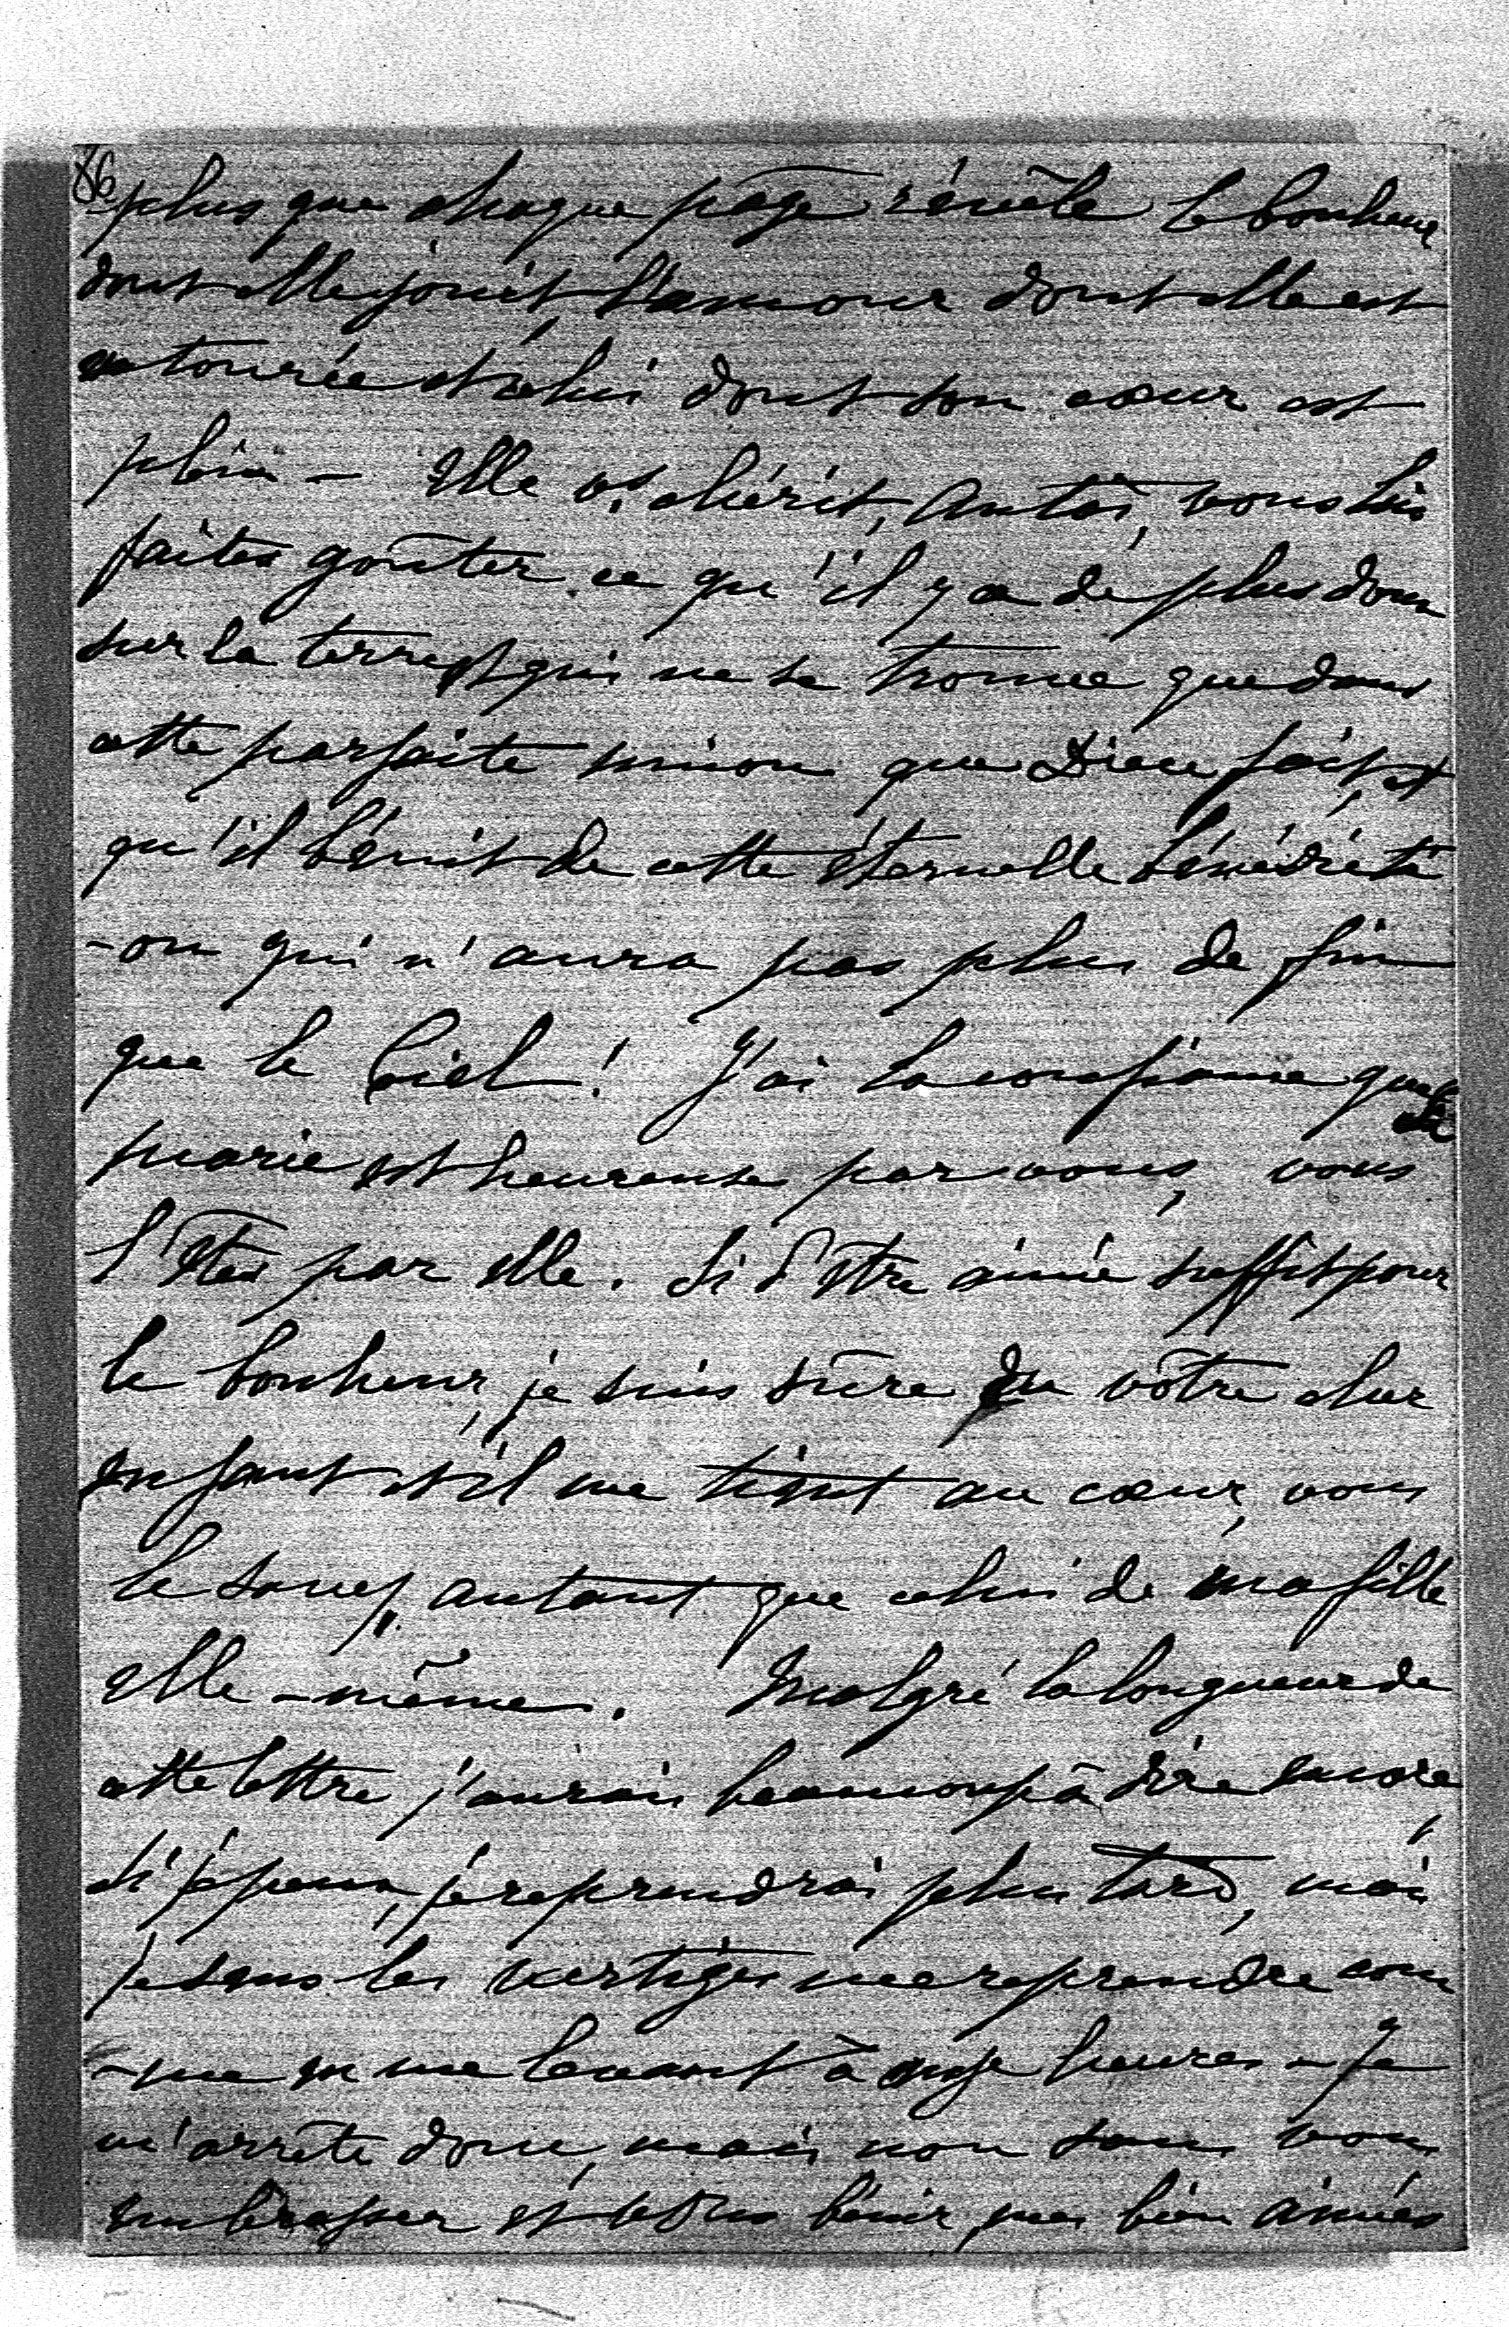 86
plus que chaque page révèle le bonheur
dont elle jouit, l'amour dont elle est
entourée et celui dont son cœur est
plein – Elle vs chérit, vous lui
faites goûter ce qu'il y a de plus doux
sur la terre et qui ne se trouve que dans
cette parfaite union que Dieu fait, et
qu'il bénit de cette éternelle bénédicti
-on qui n'aura pas plus de fin
que le Ciel ! J'ai la confiance que si
Marie est heureuse par vous, vous
l'êtes par elle. Si d'être aimé suffit pour
le bonheur, je suis sûre du vôtre cher
enfant et il me tient au cœur, vous
le savez, autant que celui de ma fille
elle-même. Malgré la longueur de
cette lettre j'aurais beaucoup à dire encore,
si je peux, je reprendrai plus tard, mais
je sens les vertiges me reprendre com
-me en me levant à onze heures – Je
m'arrête donc, mais non sans vous
embrasser et vous bénir, mes bien aimés